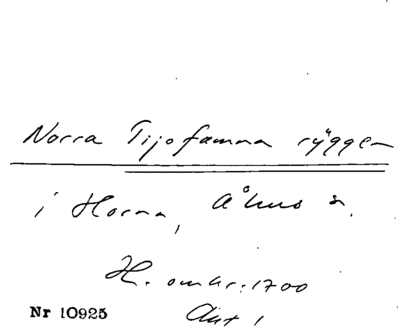 Norra Tijofamna ryggen
i Horna, Åhus sn.
H. omkr. 1700
Akt 1
Nr 10925